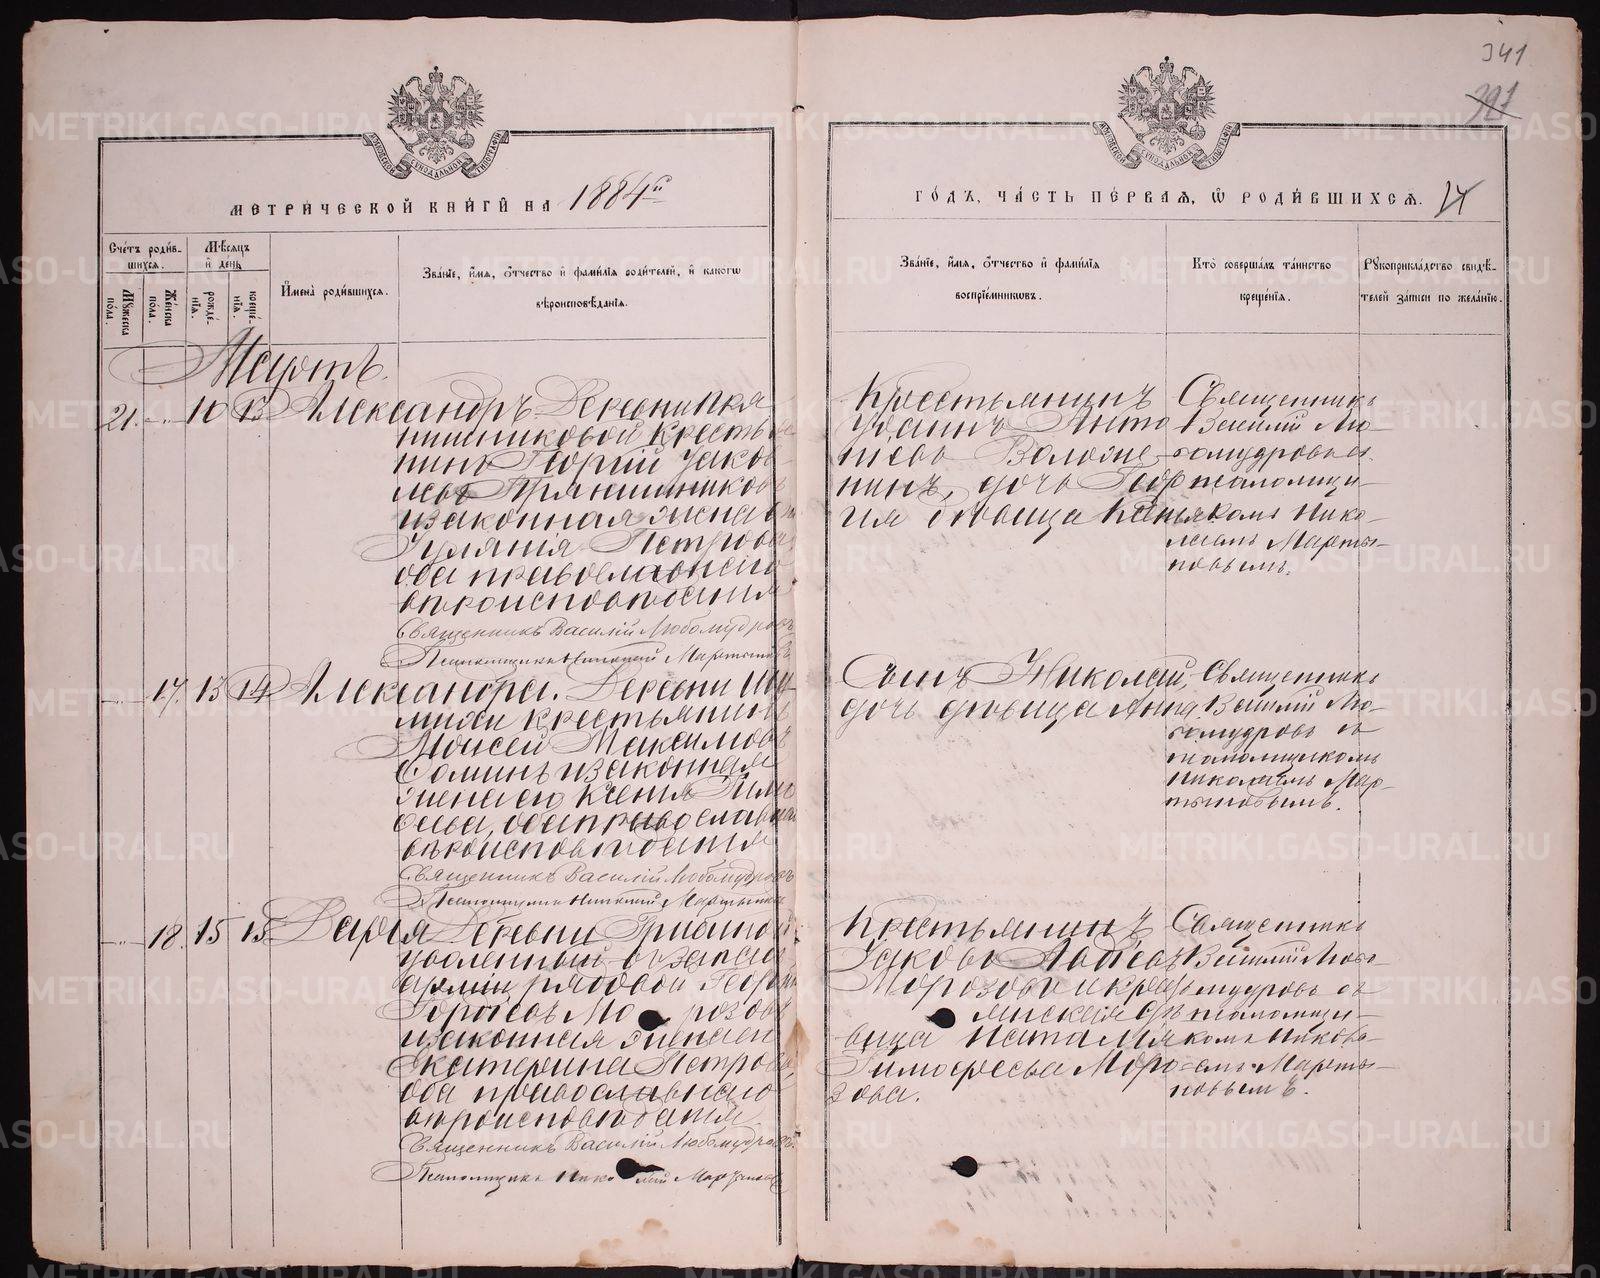 341
391
МЕТРИЧЕСКОЙ КНИГИ НА 1884й
ГОДЪ, ЧАСТЬ ПЕРВАЯ, Ѡ РОДИВШИХСЯ.
Счетъ родив-
шихся.
Мѣсяцъ
и день
Мужеска
пола.
Женска
пола.
рожде-
нія.
креще-
нія.
Имена родившихся.
Званіе, имя, отчество и фамилія родителей, и какогѡ
вѣроисповѣданія.
Званіе, имя, отчество и фамилія
воспріемниковъ.
Кто совершалъ таинство
крещенія.
Рукоприкладство свидѣ-
телей записи по желанію.
Мартъ.
21. 10 13 Александръ Деревни Пря
нишниковой крестья
нинъ Георгій Іаков
левъ Прянишниковъ
и законная жена его
Іуліанія Петрова
оба православнаго
вѣроисповѣданія
Священникъ Василій Любомудровъ
Псаломщикъ Николай Мартыновъ
Крестьянинъ
Іоаннъ Анто
ніевъ Воложе-
нинъ, дочь Геор
гія девица
Священникъ
Василій Лю-
бомудровъ съ
псаломщи-
комъ Нико-
лаемъ Марты-
новымъ.
17. 13 14 Александра. Деревни
крестьянинъ
Моисей Максимовъ
Ѳоминъ и законная
жена его Ксенія Тимо
ѳеева, оба православна
вѣроисповѣданія
Священникъ Василій Любомудровъ
Псаломщикъ Николай Мартыновъ
Сынъ Николай,
дочь девица Анна
Священникъ
Василій Лю-
бомудровъ съ
псаломщикомъ
Николаемъ Мар-
тыновымъ.
18. 15 15 Дарія Деревни Грязной
уволенный въ запасъ
арміи рядовой Георгій
Морозовъ
и законная жена его
Екатерина Петрова,
оба православнаго
вѣроисповѣданія
Священникъ Василій Любомудровъ
Псаломщикъ Николай Мартыновъ
Крестьянинъ
Іаковъ
Морозовъ и кресть
янская дѣ
вица Наталія
Тимоѳеева Моро
зова.
Священникъ
Василій Любо-
мудровъ съ
псаломщи-
комъ Никола-
емъ Марты-
новымъ.
METRIKI.GASO-URAL.RU